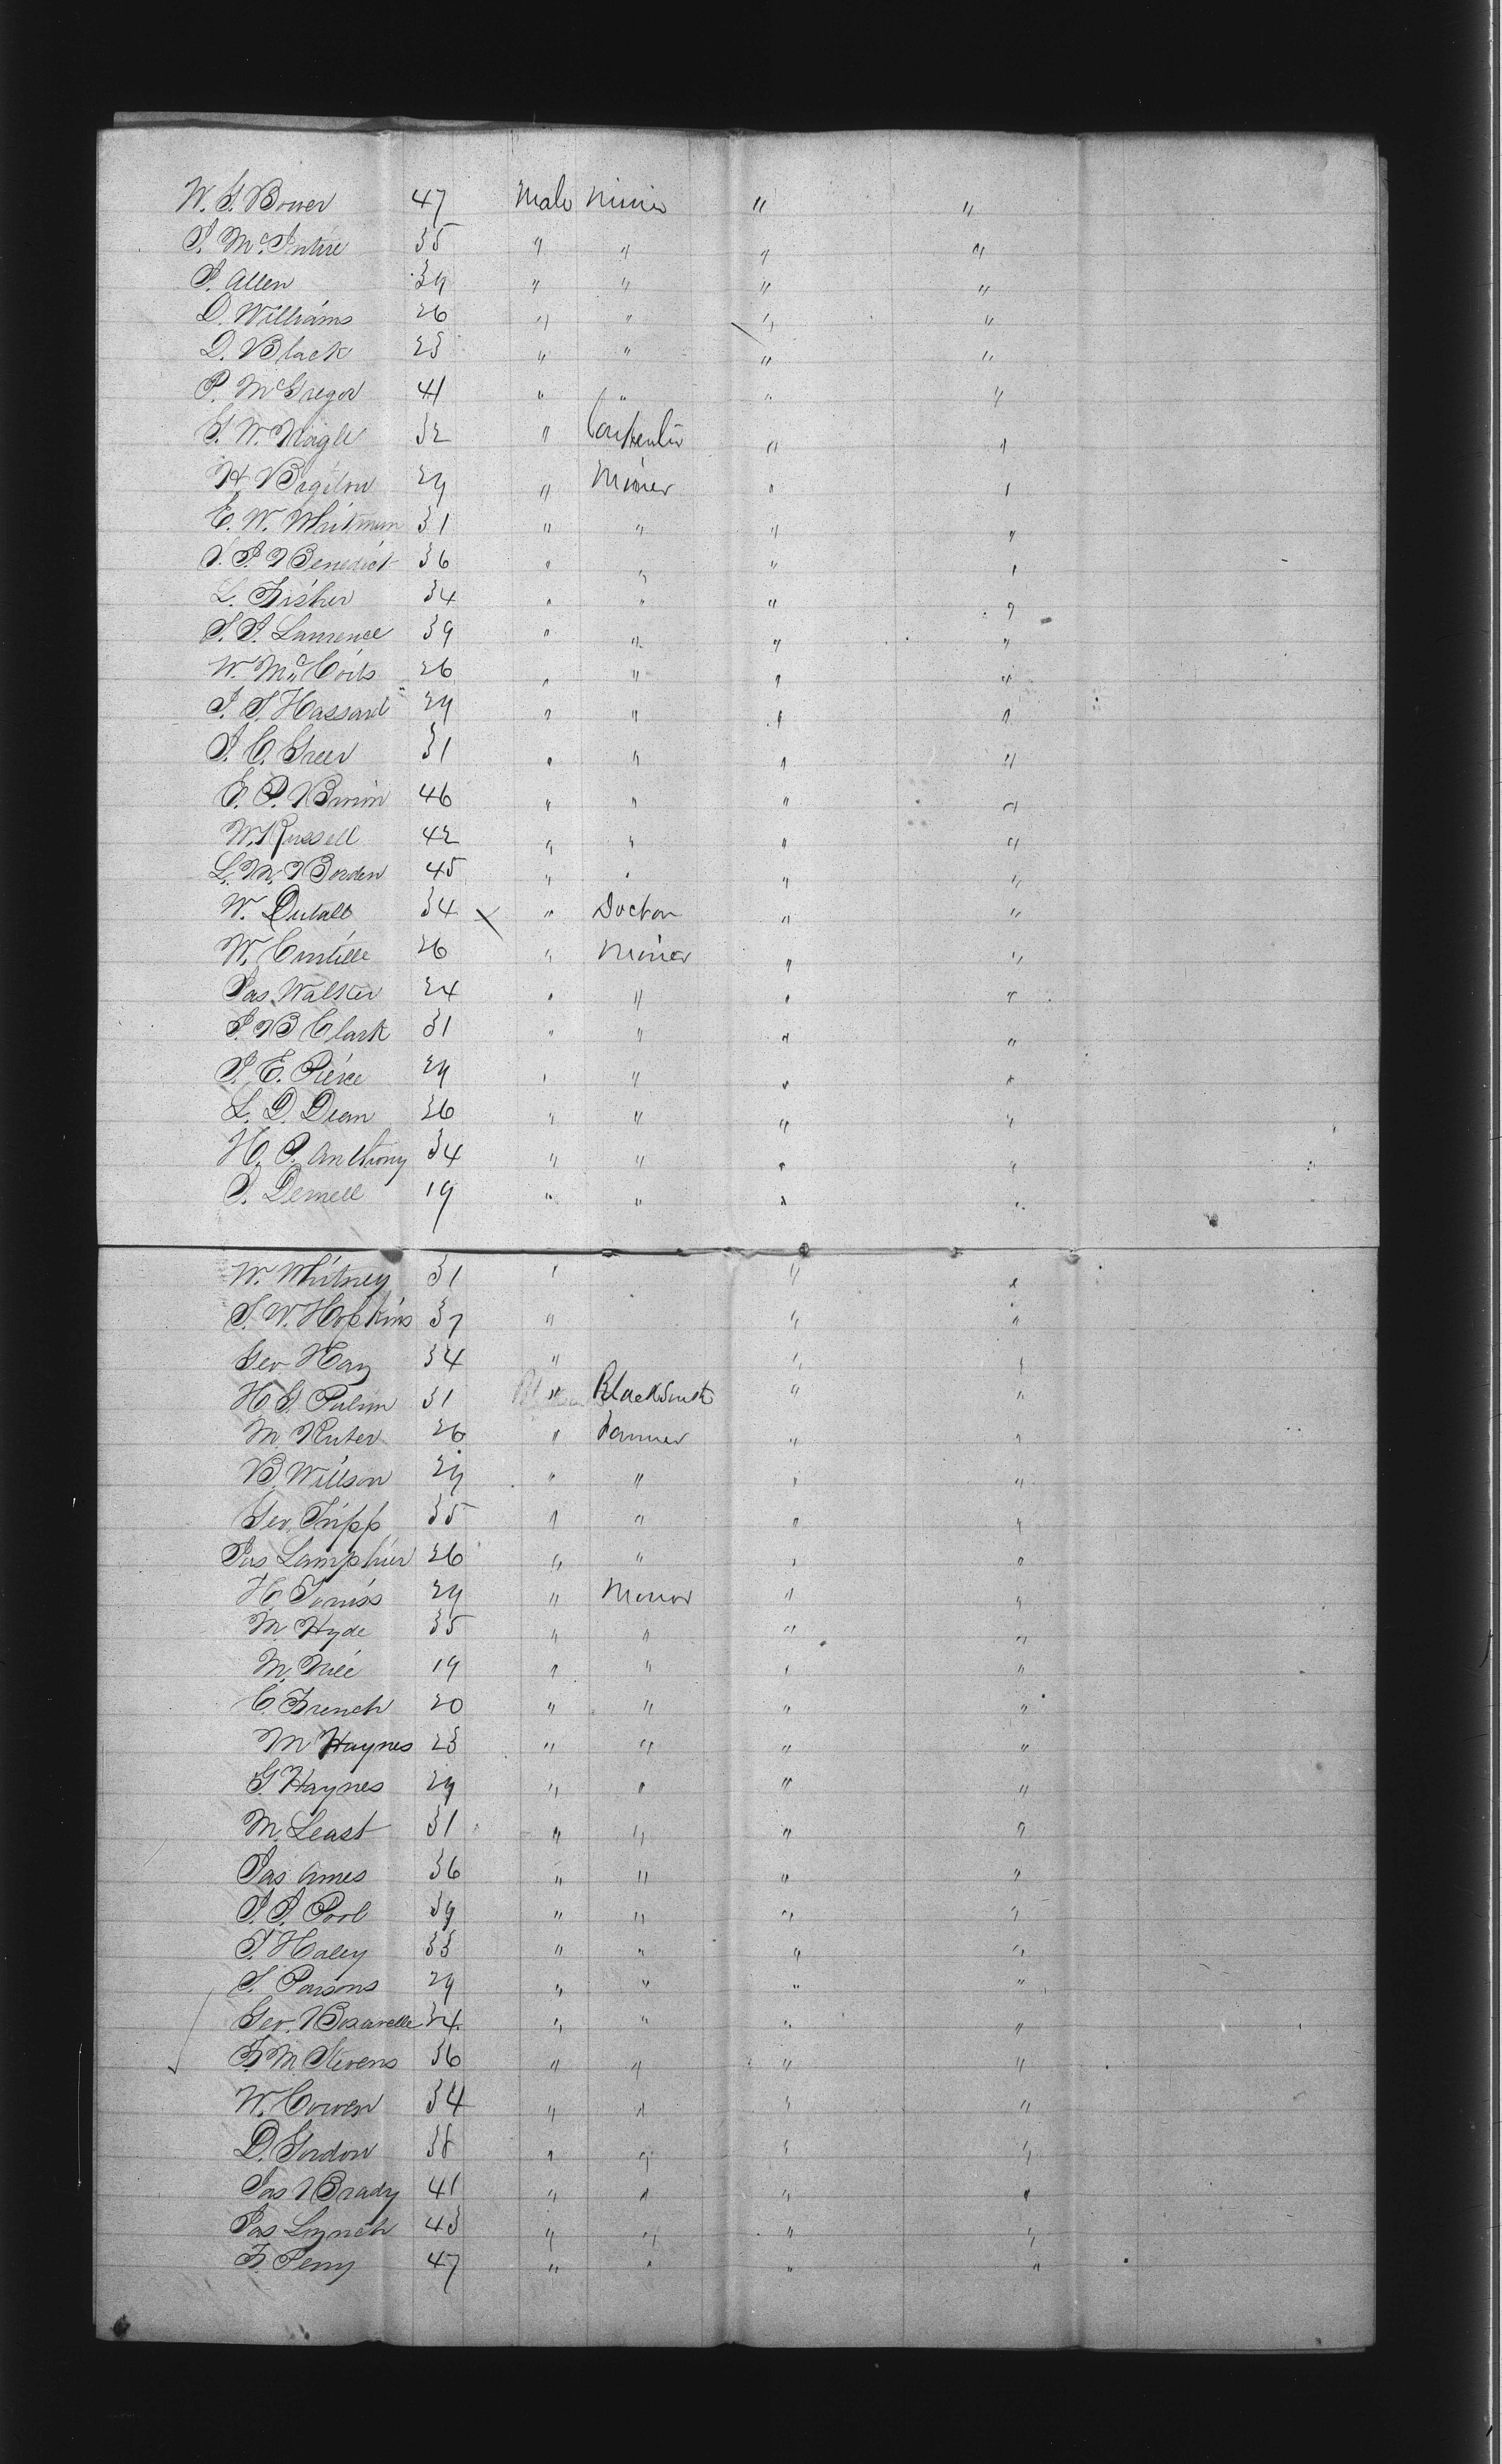 W. G. Bower 47 Male Miner " "
J. McIntire 35 " " " "
J. Allen 39 " " " "
D. Williams 26 " " " "
D. Black 23 " " " "
P. McGregor 41 " " " "
G. W. Nagle 32 " Carpenter " "
H. Bagilow 29 " Miner " "
E. W. Whitman 31 " " " "
J. Benedict 36 " " " "
L. Fisher 34 " " " "
Lawrence 39 " " " "
W. 26 " " " "
J. S. Hassard 29 " " " "
J. C. Greer 31 " " " "
E. P. 46 " " " "
W. Russell 42 " " " "
L. M. Borden 45 " " " "
W. Duvall 34 " Doctor " "
W. 26 " Miner " "
Jas. Walker 24 " " " "
J. B Clark 31 " " " "
J. E. Pierce 29 " " " "
L. D. Dean 26 " " " "
H. P. Anthony 34 " " " "
19 " " " "
W. Whitney 31 " " "
S. W. Hopkins 37 " " "
Geo Hay 34 " " "
H. G. 31 " Blacksmith " "
M. Ruter 26 " Farmer " "
B. Willson 29 " " " "
Geo. Tripp 35 " " " "
Jas Lamphier 26 " " " "
H. 29 " Minor " "
M. Hyde 35 " " " "
M. 19 " " " "
C. French 20 " " " "
M Haynes 23 " " " "
G. Haynes 29 " " " "
M. Least 31 " " " "
Jas Ames 36 " " " "
J. J. Pool 39 " " " "
T. Haley 33 " " " "
S. Parsons 29 " " " "
Geo. 34 " " " "
F. M. Stevens 36 " " " "
W. Cowen 34 " " " "
D. Gordon 38 " " " "
Jas Brady 41 " " " "
Jas Lynch 43 " " " "
F. Perry 47 " " " "